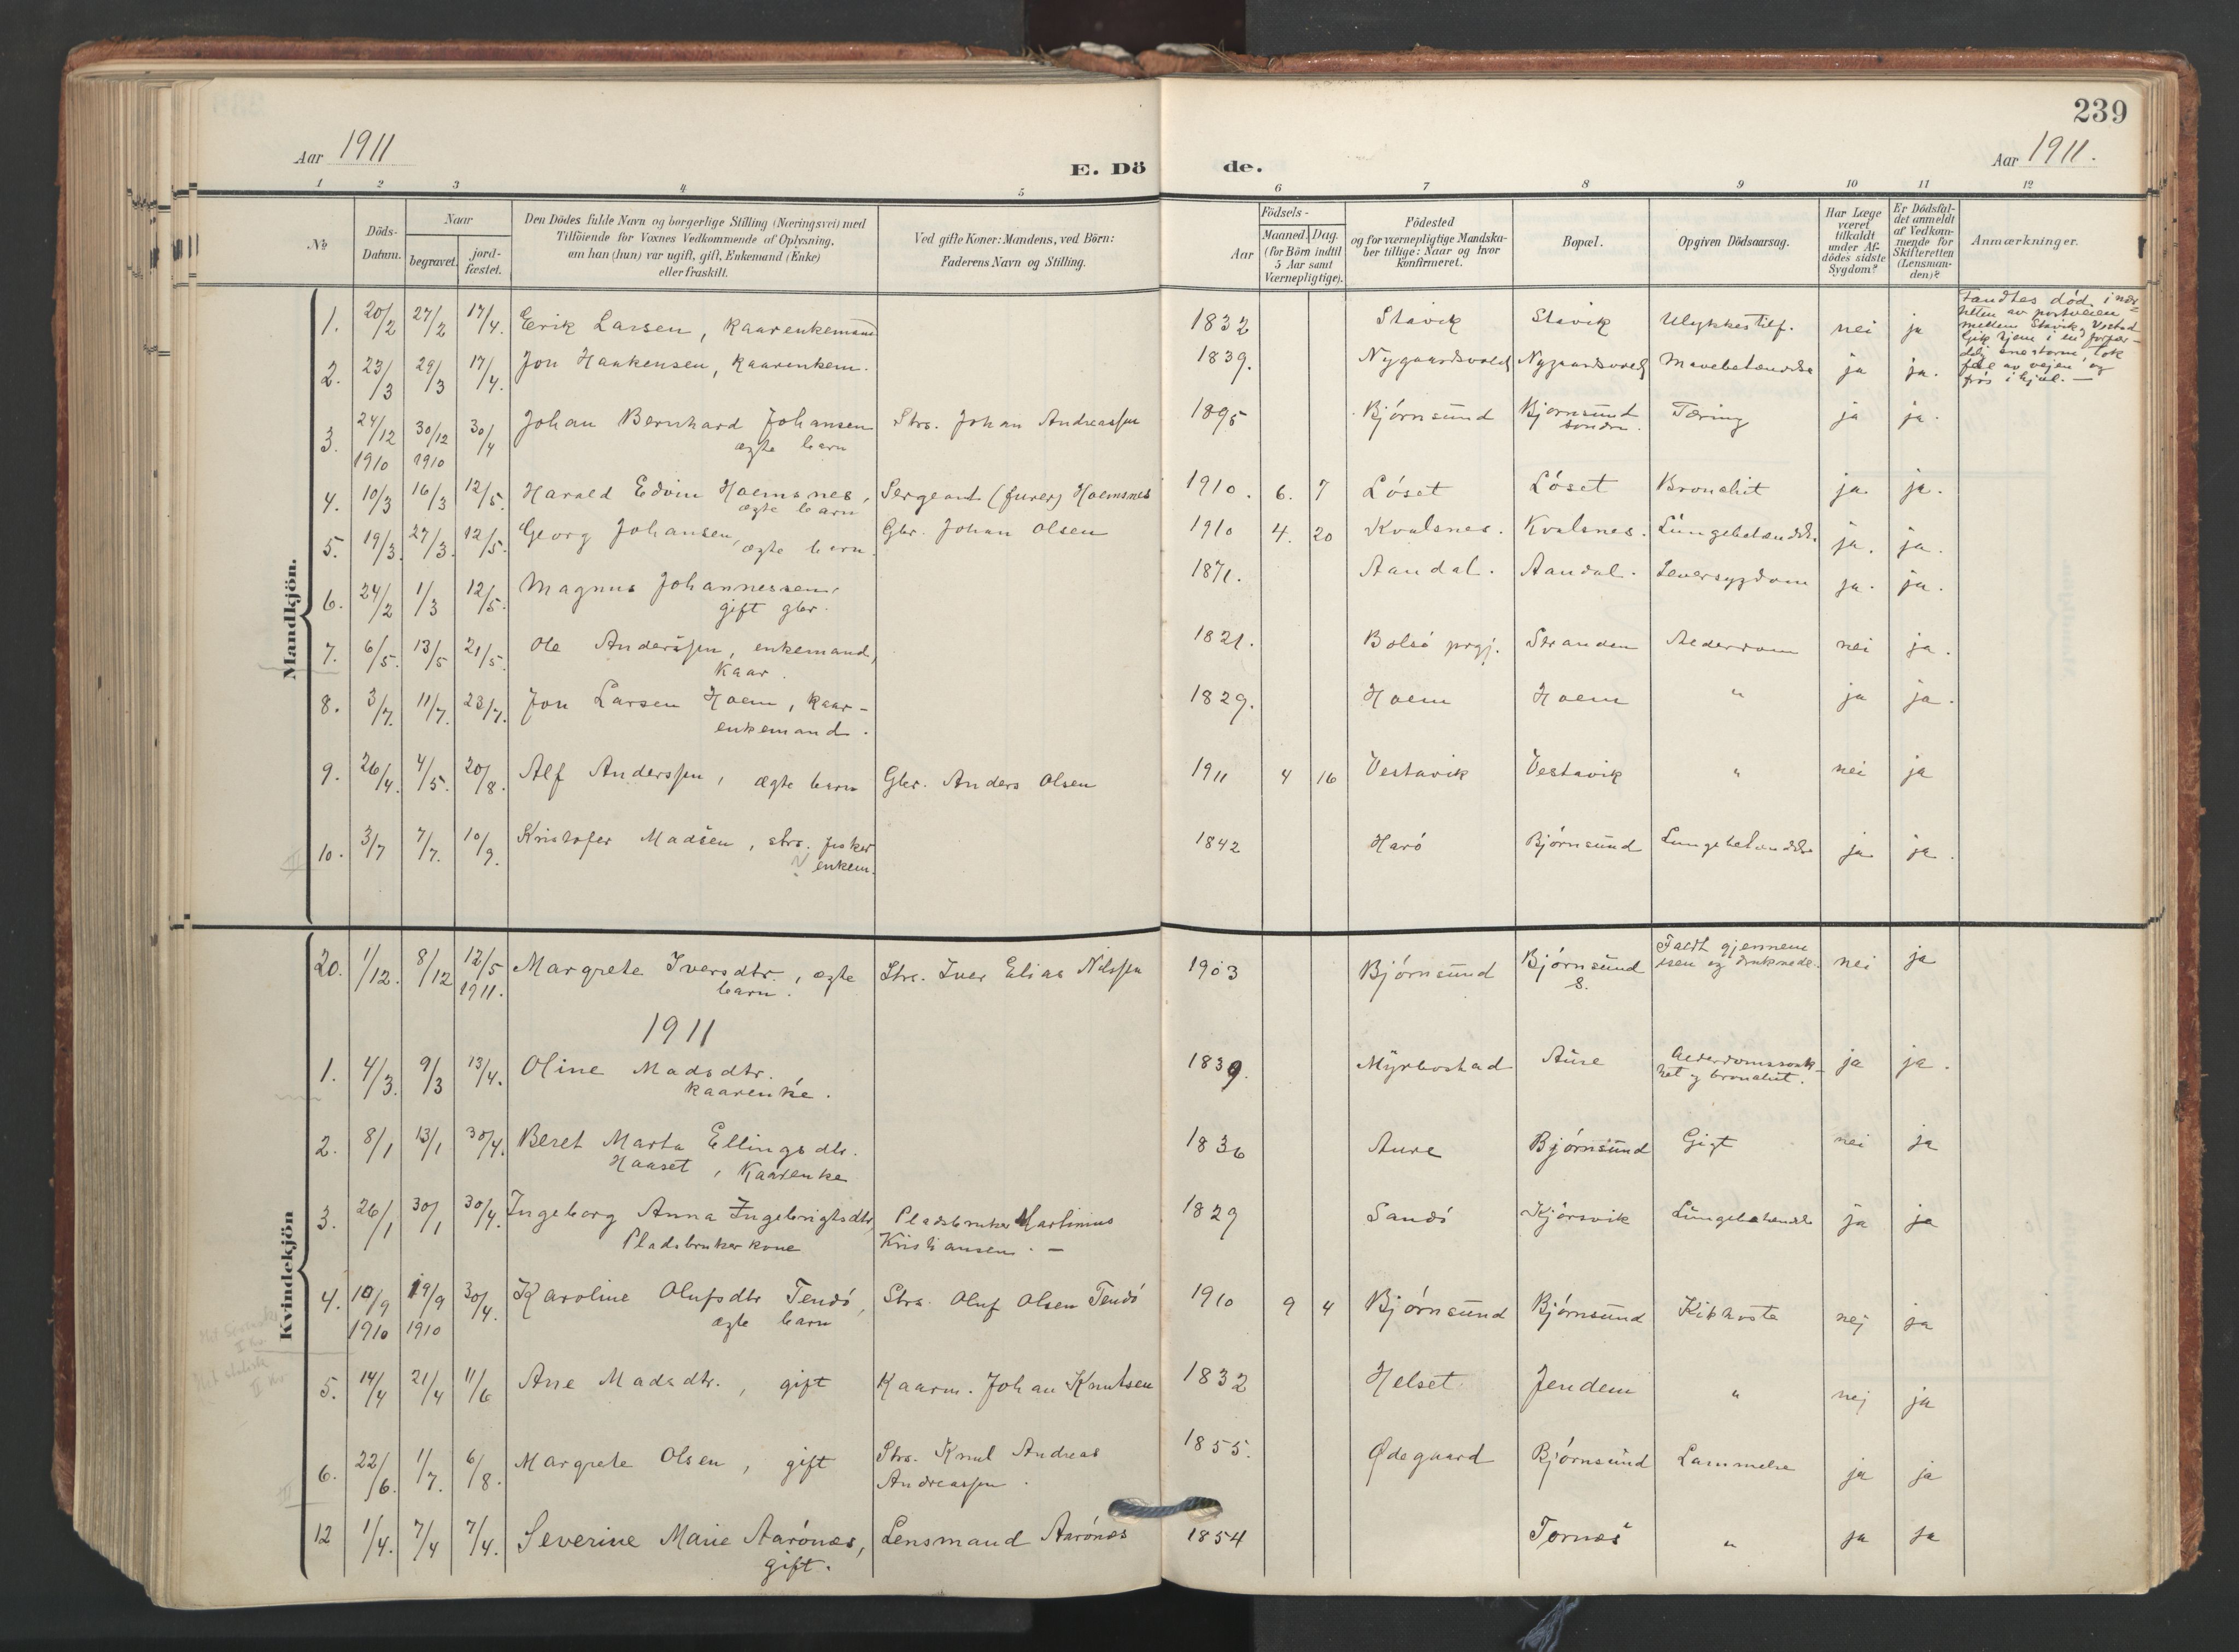 239
Aar 1911
E. Dö de.
Aar 1911.
1 2 3 4 5 6 7 8 9 10 11 12
No
Döds-Datum.
Naar
begravet.
jordfæstet.
Den Dödes fulde Navn og borgerlige Stilling (Næringsvei) med
Tilföiende for Voxnes Vedkommende af Oplysning,
om han (hun) var ugift, gift, Enkemand (Enke)
eller fraskilt.
Ved gifte Koner: Mandens, ved Börn:
Faderens Navn og Stilling.
Födsels-
Aar
Maaned. Dag.
(for Börn indtil
5 Aar samt
Værnepligtige).
Födested
og for værnepligtige Mandska-
ber tillige: Naar og hvor
Konfirmeret.
Bopæl.
Opgiven Dödsaarsag.
Har Læge
været
tilkaldt
under Af-
dödes sidste
Sygdom?
Er Dödsfal-
det anmeldt
af Vedkom-
mende for
Skifteretten
(Lensman-
den)?
Anmærkninger.
Mandkjön.
1. 20/2 27/2 17/4. Erik Larsen, Kaarenkemand 1832 Stavik Stavik Ulykkestilf. nei ja
Fandtes död i nær
heten av postveien
mellem Stavik og Vestad
Gik hjem i en forfær-
delig snestorm, tok
feil av vejen og
frös ihjæl. —
2. 23/3 29/3 17/4. Jon Haakensen, Kaarenkem. 1839. Nygaardsvold Nygaardsvold Mavebetændelse ja ja.
3. 24/12 1910 30/12 1910 30/4 Johan Bernhard Johansen Strs. Johan Andreassen 1895 Björnsund Björnsund Tæring ja ja.
ægte barn söndre.
4. 10/3 16/3 12/5. Harald Edvin Hoemsnes, Sergeant (furer) Hoemsnes 1910. 6. 7 Löset Löset Bronchit ja ja.
ægte barn
5. 19/3. 27/3. 12/5. Georg Johansen, Gbr. Johan Olsen 1910 4. 20 Kvalsnes. Kvalsnes. Lungebetændelse ja. ja.
ægte barn.
6. 24/2 1/3 12/5. Magnus Johannessen, 1871. Aandal. Aandal. Leversygdom ja. ja.
gift gbr.
7. 6/5. 13/5 21/5. Ole Anderssen, enkemand, 1821. Bolsö prgj. Stranden Alderdom nei ja.
Kaar.
8. 3/7. 11/7. 23/7. Jon Larsen Hoem, Kaar- 1829. Hoem Hoem " ja ja.
enkemand.
9. 26/4. 4/5. 20/8. Alf Anderssen, ægte barn Gbr. Anders Olsen 1911 4 16 Vestavik Vestavik " nei ja
10. 3/7 7/7. 10/9. Kristofer Madsen, strs. fisker 1842 Harö Björnsund Lungebetændelse ja ja.
enkem.
Kvindekjön
20. 1/12. 8/12 12/5 1911. Margrete Iversdtr., ægte Strs. Iver Elias Nilssen 1903 Björnsund Björnsund S. Faldt gjennem nei ja
barn. isen og druknede.
1911
1. 4/3. 9/3 13/4. Oline Madsdtr. 1839. Myrbostad Aure Alderdomssvak- ja ja.
kaarenke. het og bronchit.
2. 8/1 13/1 30/4. Beret Marta Ellingsdtr. 1836 Aure Björnsund Gigt nei ja
Haaset, Kaarenke
3. 26/1 30/1 30/4. Ingeborg Anna Ingebrigtsdtr, Pladsbruker Martinius 1829 Sandö Kjörsvik Lungebetændelse ja ja
Pladsbrukerkone Kristiansen. —
4. 10/9 1910 19/9 1910 30/4. Karoline Olufsdtr Tendö, Strs. Oluf Olsen Tendö 1910 9 4 Björnsund Björnsund Kikhoste nej ja
ægte barn
5. 14/4 21/4 11/6 Ane Madsdtr., gift Kaarm. Johan Knutsen 1832 Helset Jendem " nej ja
6. 22/6. 1/7. 6/8. Margrete Olsen, gift Strs. Knut Andreas 1855. Ødegaard Björnsund Lammelse ja ja
Andreassen.
12 1/4. 7/4 7/4. Severine Marie Aarönæs, Lensmand Aarönæs 1854 Tornes " ja ja
gift.